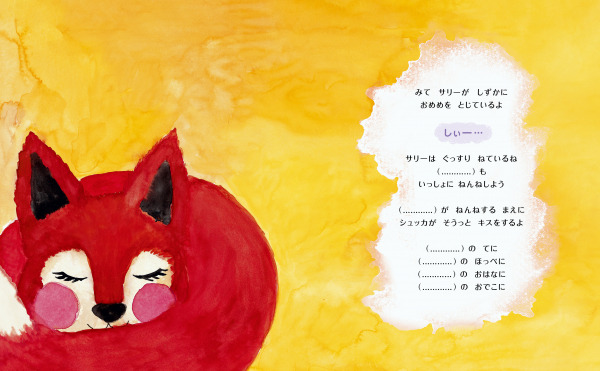 みて サリーが しずかに
おめめを とじているよ
しぃー…
サリーは ぐっすり ねているね
(…………)も
いっしょに ねんねしよう
(…………)が ねんねする まえに
シュッカが そうっと キスをするよ
(…………)の てに
(…………)の ほっぺに
(…………)の おはなに
(…………)の おでこに